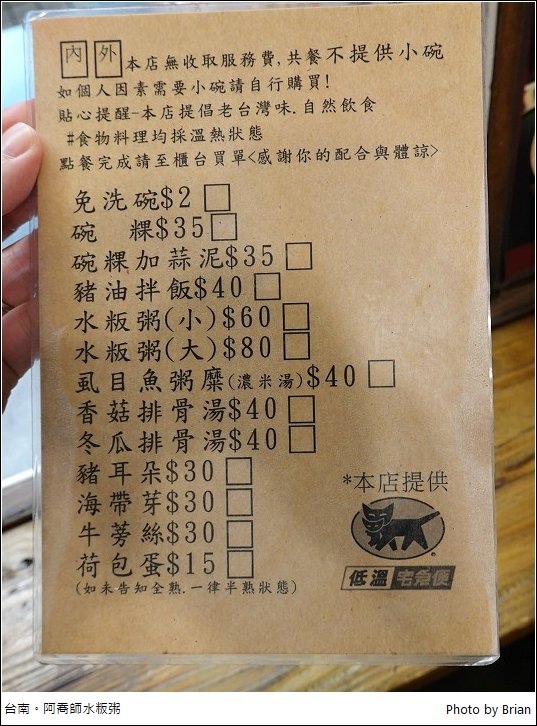 內 外 本店無收取服務費,共餐不提供小碗
如個人因素需要小碗請自行購買!
貼心提醒-本店提倡老台灣味.自然飲食
#食物料理均採溫熱狀態
點餐完成請至櫃台買單<感謝你的配合與體諒>
免洗碗$2
碗 粿$35
碗粿加蒜泥$35
豬油拌飯$40
水粄粥(小)$60
水粄粥(大)$80
虱目魚粥糜(濃米湯)$40
香菇排骨湯$40
冬瓜排骨湯$40
豬耳朵$30
海帶芽$30
牛蒡絲$30
荷包蛋$15
(如未告知全熟.一律半熟狀態)
*本店提供
低溫宅急便
台南。阿喬師水粄粥
Photo by Brian